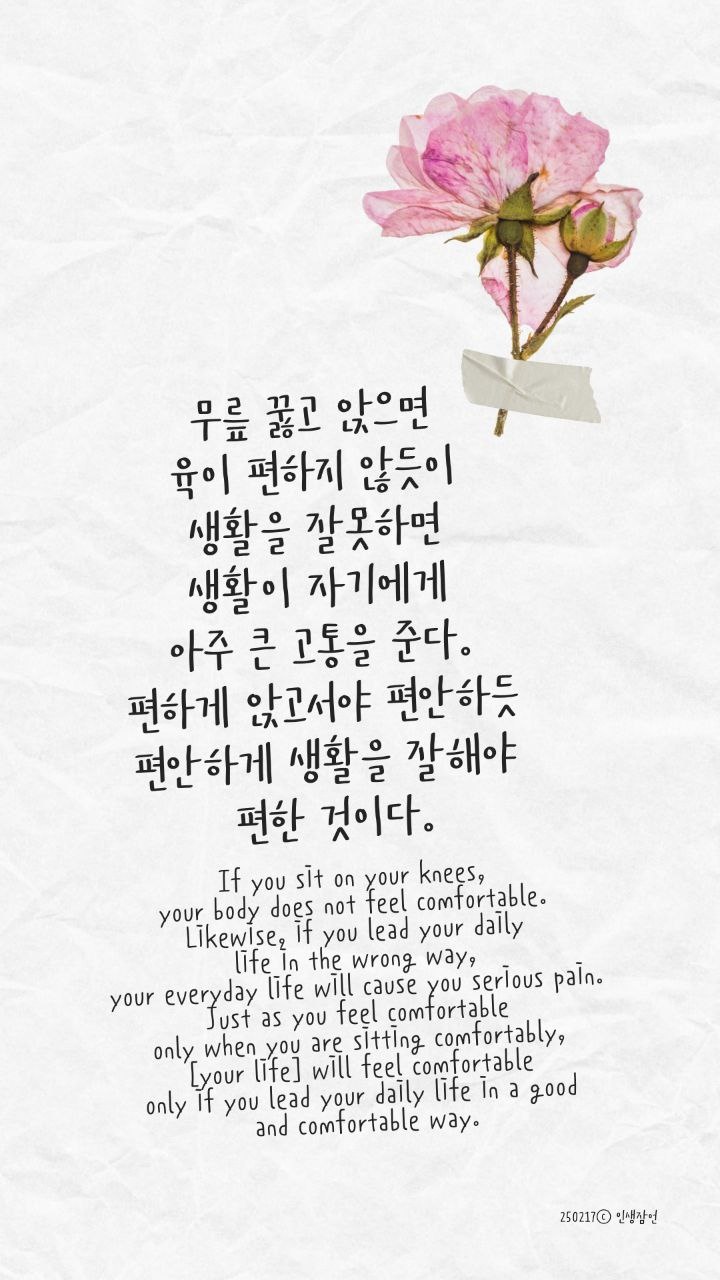 무릎 꿇고 앉으면
육이 편하지 않듯이
생활을 잘못하면
생활이 자기에게
아주 큰 고통을 준다.
편하게 앉고서야 편안하듯
편안하게 생활을 잘해야
편한 것이다.
If you sit on your knees,
your body does not feel comfortable.
Likewise, if you lead your daily
life in the wrong way,
your everyday life will cause you serious pain.
Just as you feel comfortable
only when you are sitting comfortably,
[your life] will feel comfortable
only if you lead your daily life in a good
and comfortable way.
250217ⓒ 인생잠언